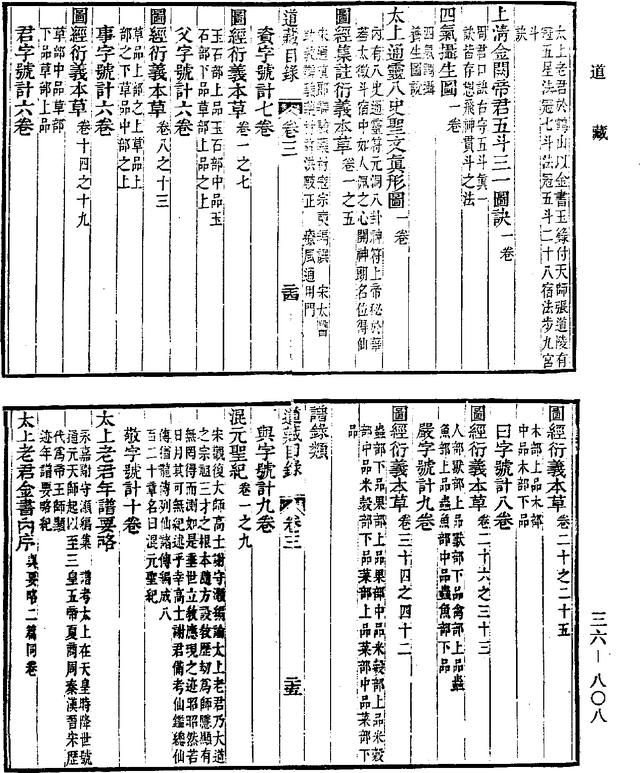 道藏
三六—八〇八
太上老君於鶴山以金書玉籙付天師張道陵有
冠五星法冠七斗法冠五斗二十八宿法步九宮
斗
訣
上清金闕帝君五斗三一圖訣 一卷
周君口訣右守五斗真一
訣皆存想飛神貫斗之法
四氣攝生圖 一卷
四氣調攝
養生圖說
太上通靈八史聖文真形圖 一卷
內有八史通靈符元洞八卦神符上帝秘於華
蓋太微斗宿中如人佩之心開神聰名位得仙
圖經集註衍義本草 卷一之五
宋通直郎辯驗藥材寇宗奭編撰 宋太醫
許洪校正 療風通用門
道藏目錄 卷三 二十四
資字號計七卷
圖經衍義本草 卷一之七
玉石部上品玉石部中品玉
石部下品草部上品之上
父字號計六卷
圖經衍義本草 卷八之十三
草部上品之上草部上品
之下草部中品之上
事字號計六卷
圖經衍義本草 卷十四之十九
草部中品草部
下品草部上品
君字號計六卷
圖經衍義本草 卷二十之二十五
木部上品木部
中品木部下品
曰字號計八卷
圖經衍義本草 卷二十六之三十三
人部獸部上品獸部下品禽部上品蟲
魚部上品蟲魚部中品蟲魚部下品
嚴字號計九卷
圖經衍義本草 卷三十四之四十二
蟲部下品果部上品果部中品米穀部上品米穀
部中品米穀部下品菜部上品菜部中品菜部下
品
譜籙類
道藏目錄 卷三 二十五
與字號計九卷
混元聖紀 卷一之九
宋觀復大師高士謝守灝編論太上老君乃大道
之宗祖三才之根本隨方設教歷劫為師隱顯有
無罔得而測如是垂世立教應現之迹昭昭然若
日月其可無紀述乎幸高士謝君備考仙鑑總仙
傳猶龍傳列仙諸傳編成八
百二十章名曰混元聖紀
敬字號計十卷
太上老君年譜要略
永嘉謝守灝編集 譜考太上在天皇時降世號
通元天師起以至三皇五帝夏商周秦漢晉宋歷
代為帝王師顯
迹年譜要略紀
太上老君金書內序 與要略二篇同卷